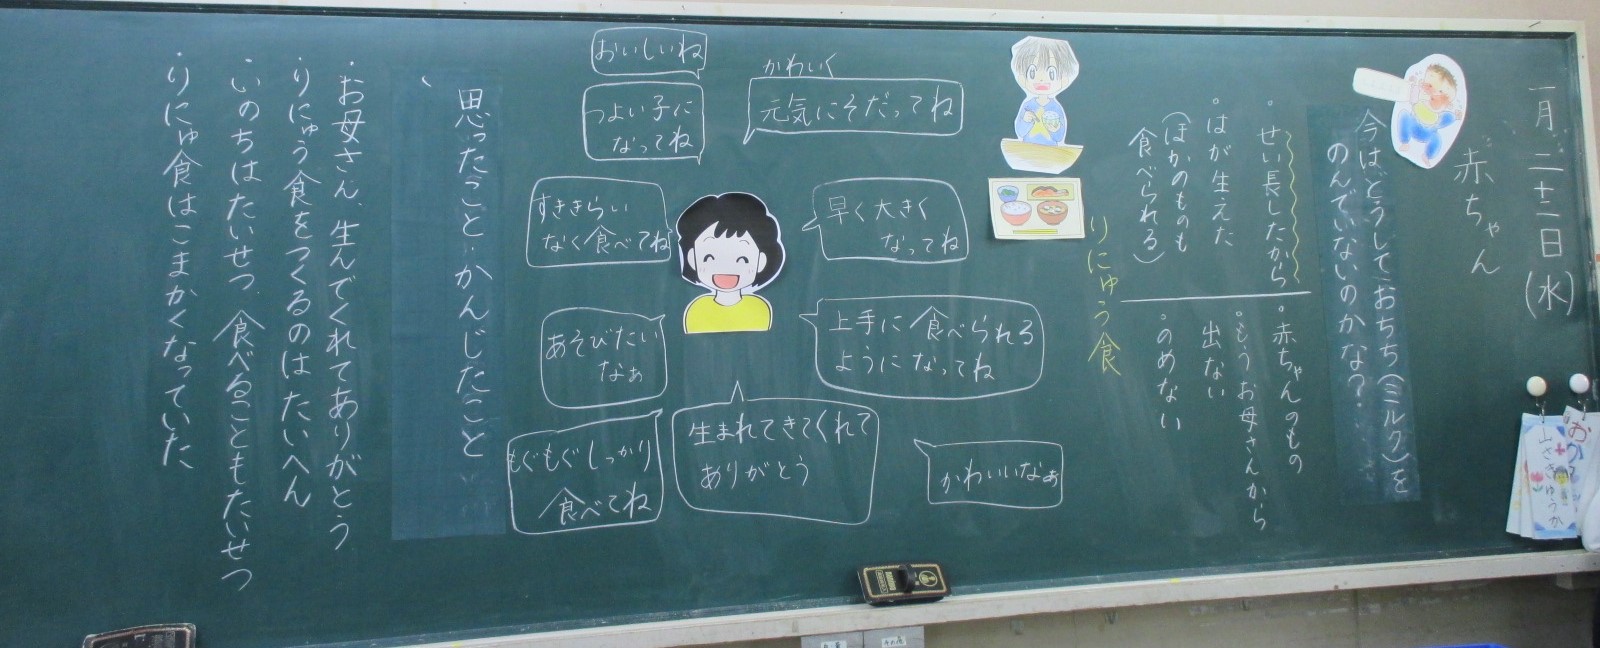 一月二十二日(水)
赤ちゃん
今は、どうしておちち(ミルク)を
のんでいないのかな?
・せい長したから
・はが生えた
(ほかのものも
食べられる)
・赤ちゃんのもの
・もうお母さんから
出ない
・のめない
りにゅう食
かわいく
元気にそだってね
おいしいね
つよい子に
なってね
早く大きく
なってね
すききらい
なく食べてね
上手に食べられる
ようになってね
あそびたい
なぁ
かわいいなぁ
生まれてきてくれて
ありがとう
もぐもぐしっかり
食べてね
思ったこと・かんじたこと
・お母さん、生んでくれてありがとう
・りにゅう食をつくるのはたいへん
・いのちはたいせつ、食べることもたいせつ
・りにゅ食はこまかくなっていた